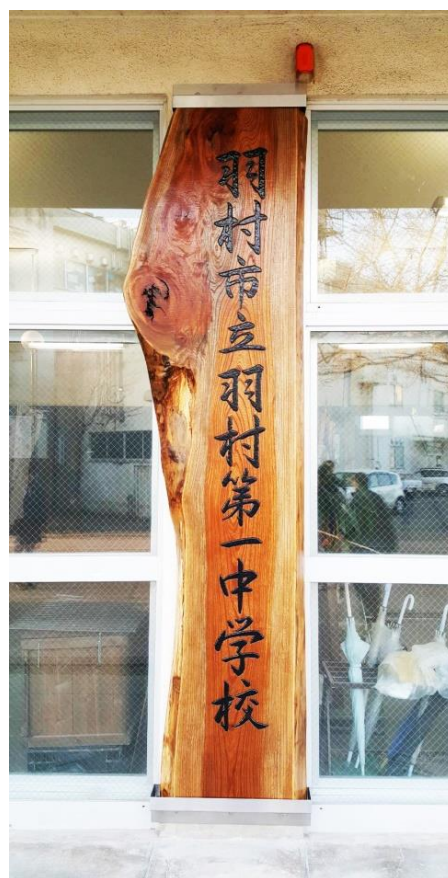 羽村市立羽村第一中学校